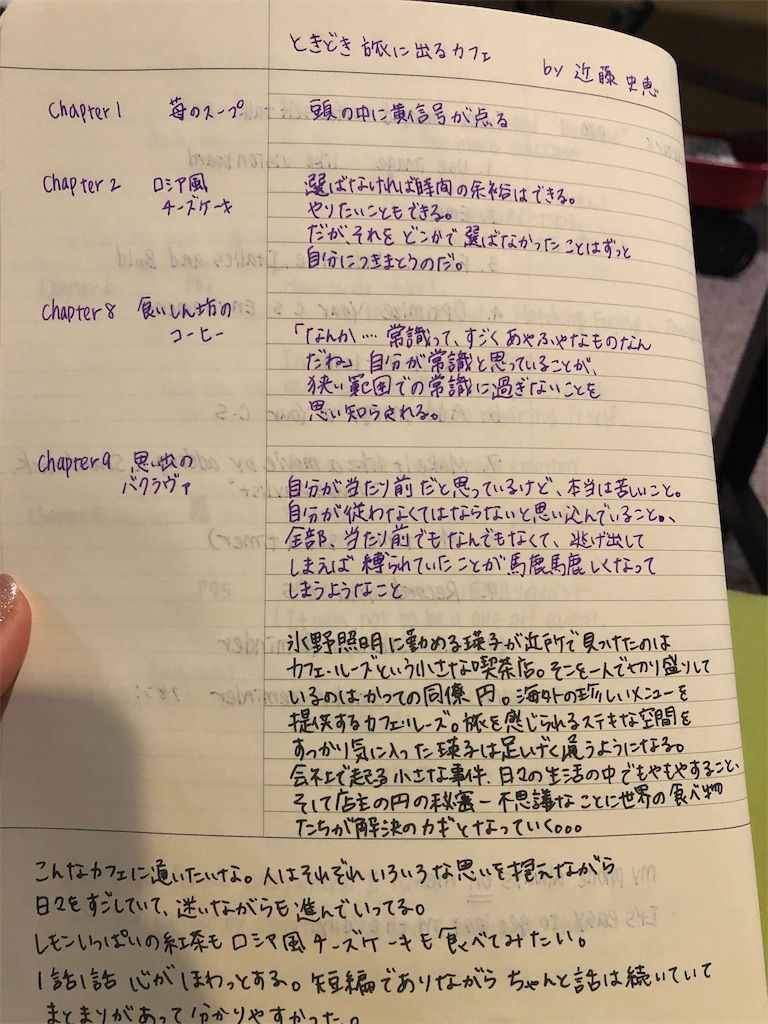 ときどき旅に出るカフェ
by 近藤史恵
Chapter 1 苺のスープ 頭の中に黄信号が点る
Chapter 2 ロシア風 選ばなければ時間の余裕はできる。
チーズケーキ やりたいこともできる。
だが、それをどこかで選ばなかったことはずっと
自分につきまとうのだ。
Chapter 8 食いしん坊の
コーヒー 「なんか… 常識って、すごくあやふやなものなん
だね」 自分が常識と思っていることが、
狭い範囲での常識に過ぎないことを
思い知らされる。
Chapter 9 思い出の
バクラヴァ 自分が当たり前だと思っているけど、本当は苦しいこと。
自分が従わなくてはならないと思い込んでいること。、
全部、当たり前でもなんでもなくて、逃げ出して
しまえば縛られていたことが馬鹿馬鹿しくなって
しまうようなこと
氷野照明に勤める瑛子が近所で見つけたのは
カフェ・ルーズという小さな喫茶店。そこを一人で切り盛りして
いるのは、かつての同僚 円。海外の珍しいメニューを
提供するカフェ・ルーズ。旅を感じられるステキな空間を
すっかり気に入った瑛子は足しげく通うようになる。
会社で起る小さな事件、日々の生活の中でもやもやすること、
そして店主の円の秘密ー不思議なことに世界の食べ物
たちが解決のカギとなっていく。。。
こんなカフェに通いたいな。人はそれぞれいろいろな思いを抱えながら
日々をすごしていて、迷いながらも進んでいってる。
レモンいっぱいの紅茶もロシア風チーズケーキも食べてみたい。
1話1話 心がほわっとする。短編でありながらちゃんと話は続いていて
まとまりがあって分かりやすかった。